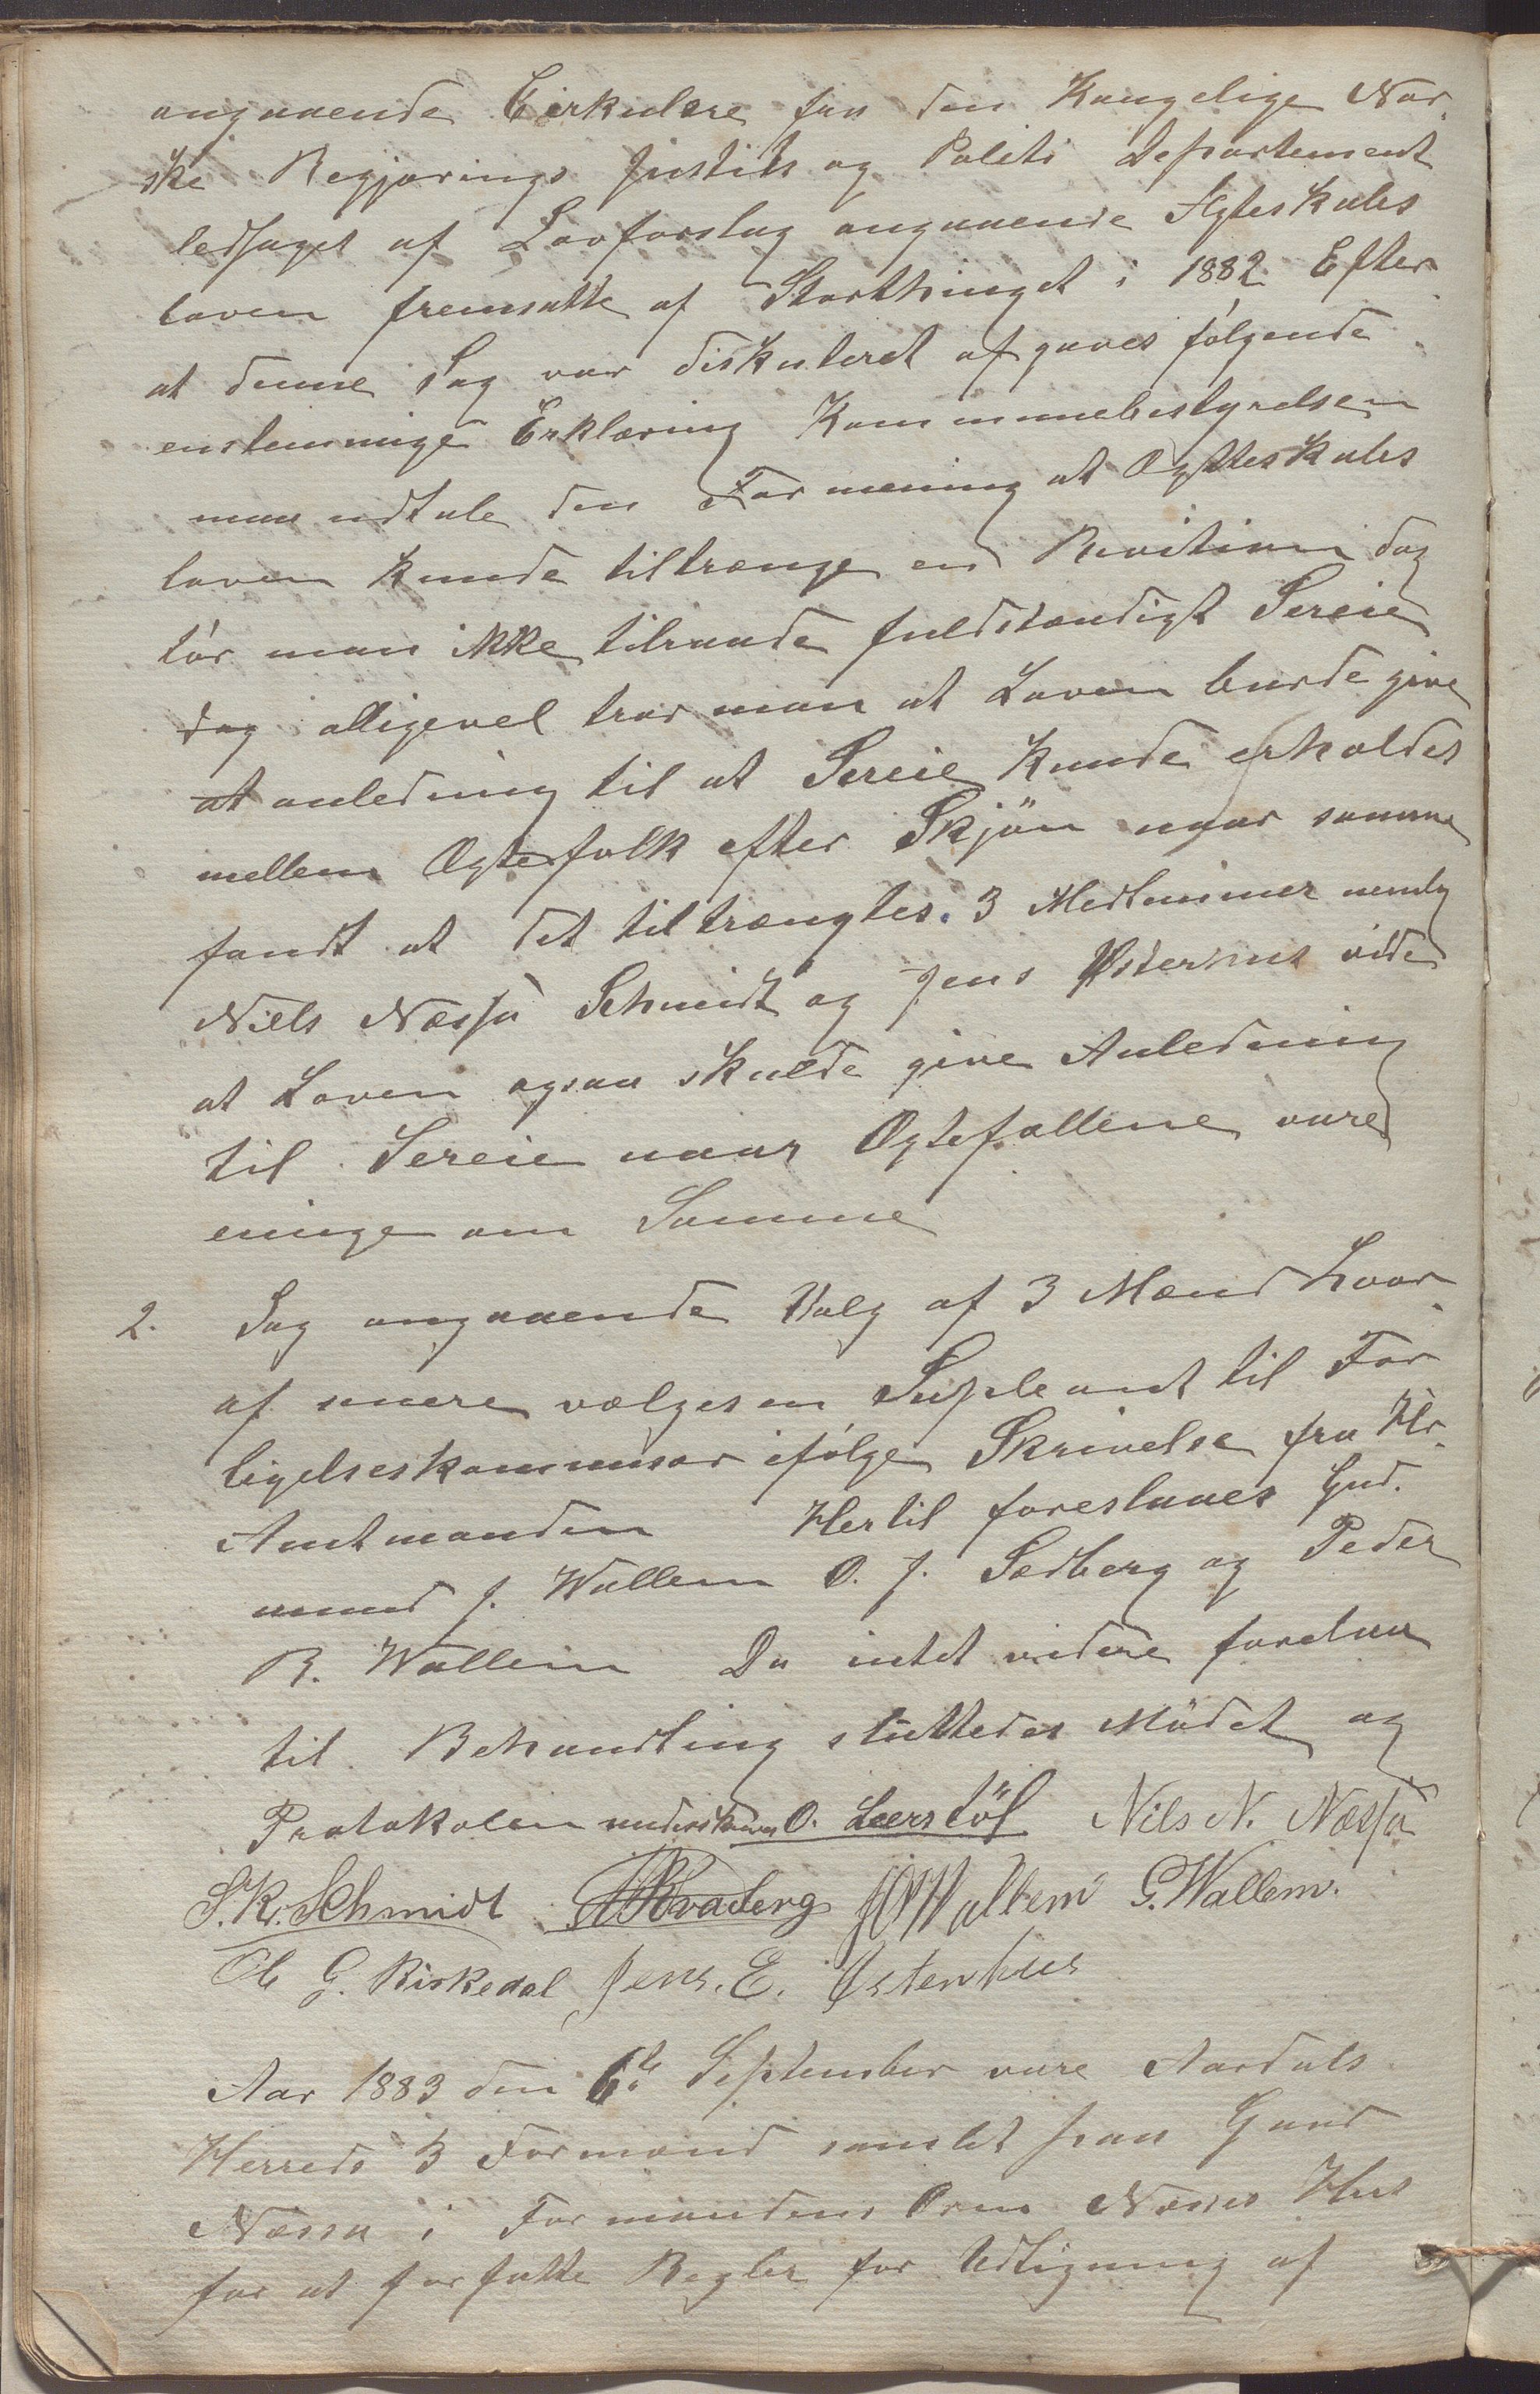 angaaende Cirkulære fra den Kongelige Nor
ske Regjerings Justits og Politi Departement
ledsaget af Lovforslag angaaende Ægteskabs
loven fremsatte af Storthinget i 1882 Efter
at denne Sag var diskuteret afgaves følgende
enstemmige Erklæring Kommunebestyrelsen
maa udtale den Formening at Ægteskabs
loven kunde tiltrænge en Revition dog
tør man ikke tilraade fuldstændigt Sereie
dog alligevel tror man at Loven burde give
at anledning til at Sereie kunde erholdes
mellem Ægtefolk efter Skjön naar samme
fandt at det tiltrængtes. 3 Medlemmer nemlig
Niels Næssø Schmidt og Jens Østerhus vilde
at Loven ogsaa skulde give Anledning
til Sereie naar Ægtefallene vare
eninge om Samme
2. Sag angaaende Valg af 3 Mænd hvor
af senere vælges en Supleant til For
ligelseskommisær ifølge Skrivelse fra Hr.
Amtmanden Hertil foreslaaes Gud.
mund J. Wallem O. J. Sedberg og Peder
R. Wallem Da intet videre forelaa
til Behandling sluttedes Mödet og
Protokolen underskreves O. Leerstöl Nils N. Næssø
S. K. Schmidt A Svadberg JO Wallem G. Wallem.
Ole G. Riskedal Jens. E. Østerhus
Aar 1883 den 6te September vare Aardals
Herreds 3 Formænd samlet paa Gaard
Næssa i Formandens Orm Næsses Hus
for at forfatte Regler for Udligning af